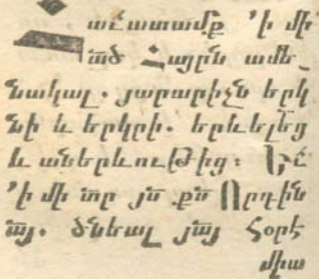 աւատամք ՚ի մի
ած Հայրն ամե֊
նակալ. յարարիչն երկ
նի և երկրի. երևելեց
և աներևութից: Եւ
՚ի մի տր յս քս Որդին
այ. ծնեալ յայ Հօրէ
միա